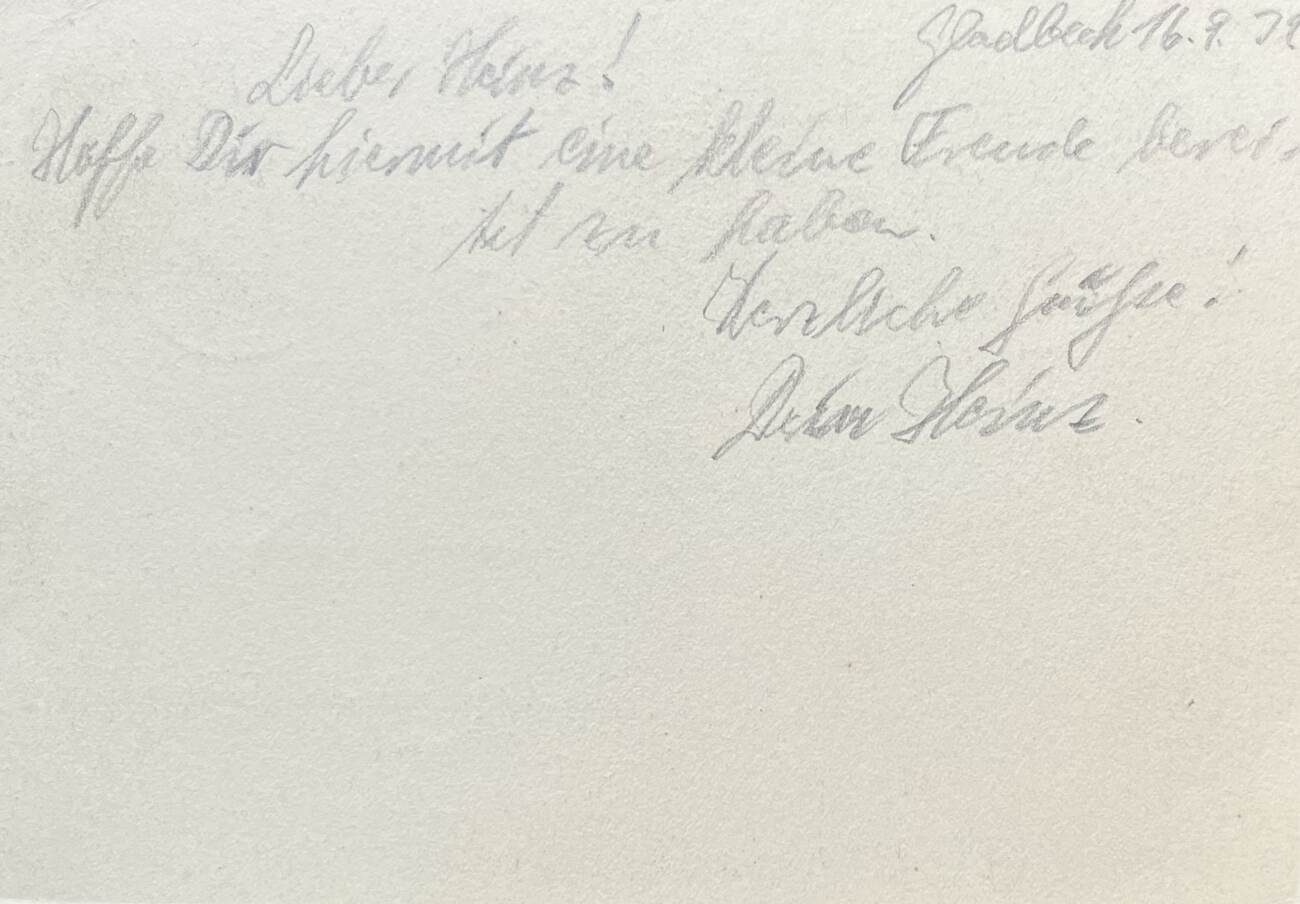 Gladbeck 16.9.79
Lieber Heinz!
Hoffe Dir hiermit eine kleine Freude berei-
tet zu haben.
Herzliche Grüße!
Dein Heinz.